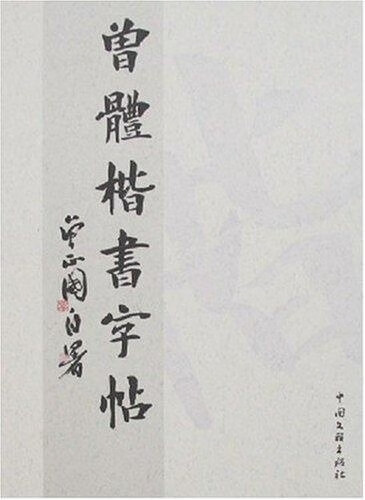 曾體楷書字帖
曾正國自署
中国文联出版社